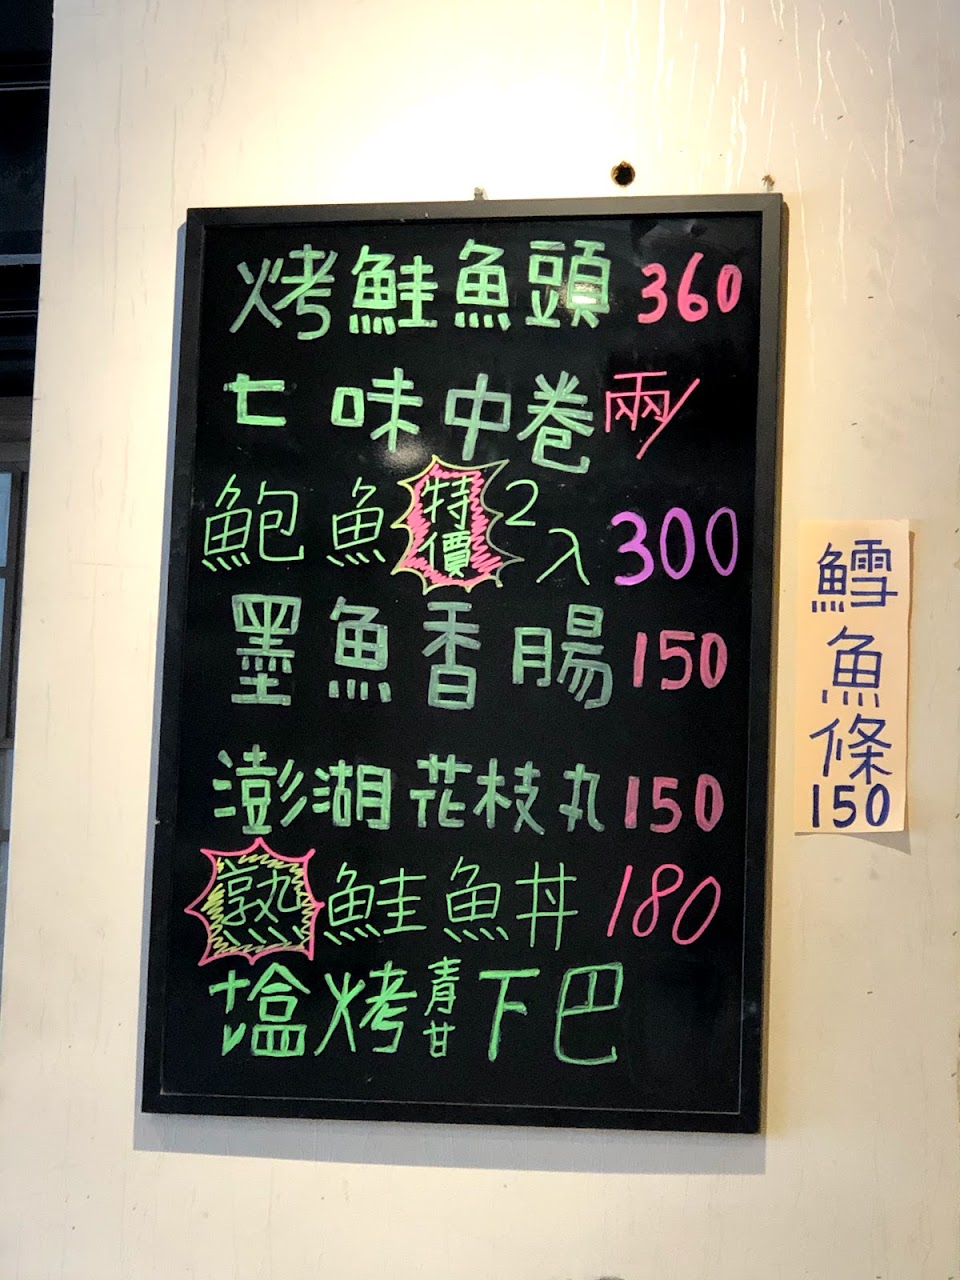 烤鮭魚頭 360
七味中卷 兩/
鮑魚 特價 2入 300
墨魚香腸 150
澎湖花枝丸 150
熟 鮭魚丼 180
塩烤青甘下巴
鱈魚條
150